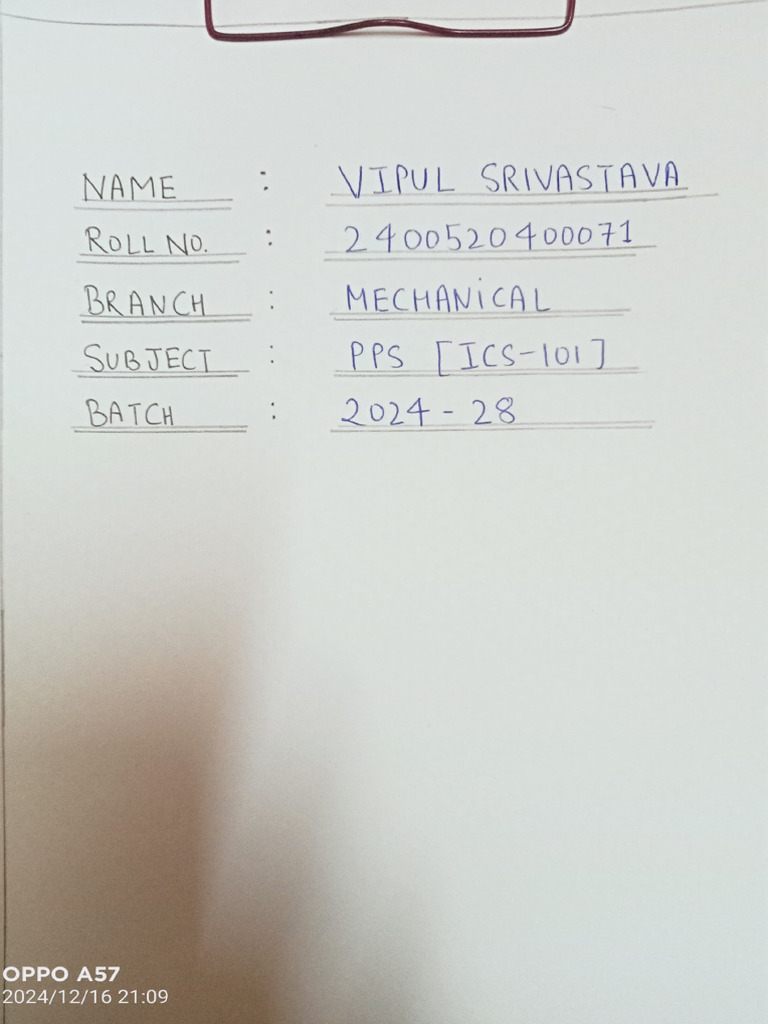 NAME : VIPUL SRIVASTAVA
ROLL NO. : 2400520400071
BRANCH : MECHANICAL
SUBJECT : PPS [ICS-101]
BATCH : 2024-28
OPPO A57
2024/12/16 21:09